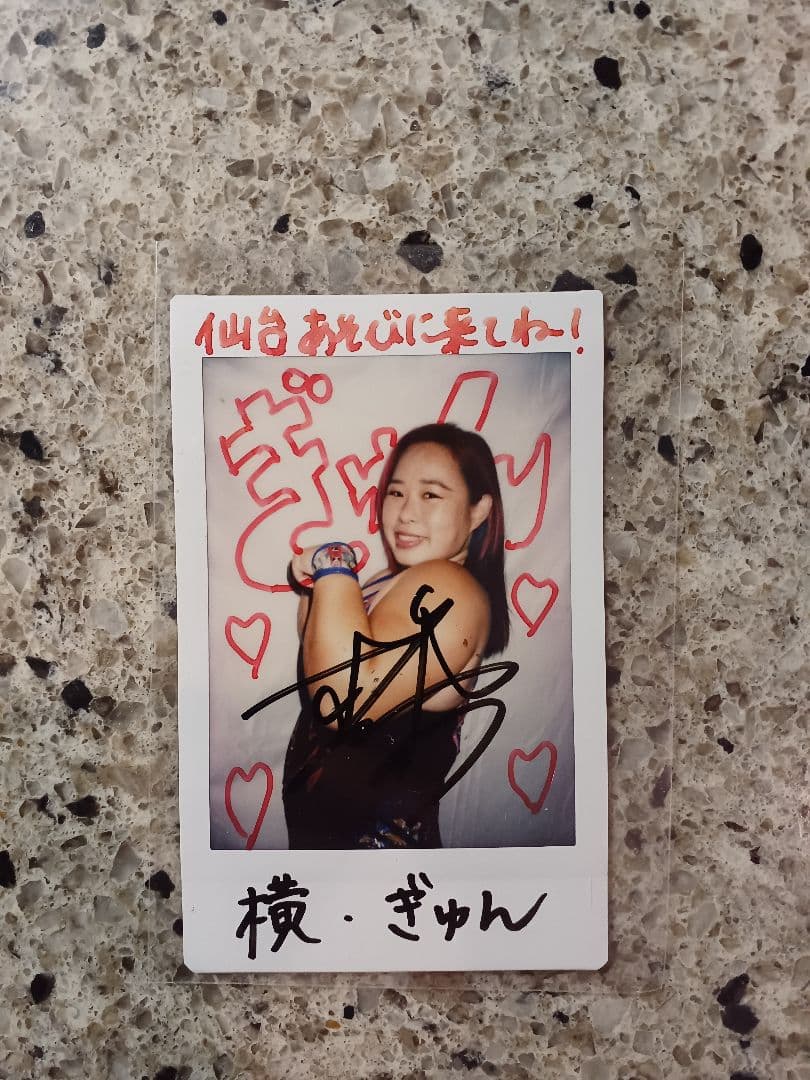 仙台あそびに来てね!
ぎゅん
横・ぎゅん